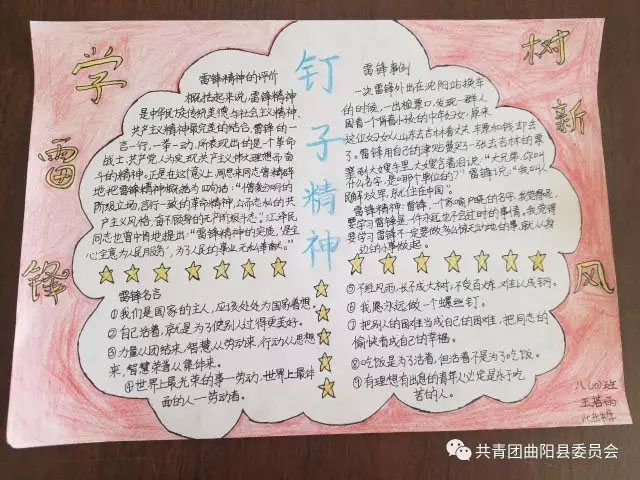 学雷锋
树新风
钉子精神
雷锋精神的评价
概括起来说,雷锋精神
是中华民族传统美德与社会主义精神、
共产主义精神最完美的结合。雷锋的一
言一行,一举一动,所表现出的是一个革命
战士、共产党人为实现共产主义伟大理想而奋
斗的精神。正是在这意义上,周恩来同志曾精辟
地把雷锋精神概括为四句话:“憎爱分明的
阶级立场,言行一致的革命精神,公而忘私的共
产主义风格,奋不顾身的无产阶级斗志。”江泽民
同志也曾中肯地提出:“雷锋精神的实质,是全
心全意为人民服务,为了人民的事业无私奉献。”
雷锋事例
一次雷锋外出在沈阳站换车
的时候,一出检票口,发现一群人
围着一个背着小孩的中年妇女,原来
这位妇女从山东去吉林看丈夫,车票和钱却丢
了。雷锋用自己的津贴费买了一张去吉林的票
塞到大嫂手里,大嫂含着泪说:“大兄弟,你叫
什么名字,是哪个单位的?”雷锋说:“我叫
解放军,就住在中国”。
雷锋精神:雷锋,一个
要学习雷锋是一件永远也不会过时的事情,我觉得
要学习雷锋不一定要做多么惊天动地的事,就从身
边的小事做起。
雷锋名言
①我们是国家的主人,应该处处为国家着想。
②自己活着,就是为了使别人过得更美好。
③力量从团结来,智慧从劳动来,行动从思想
来,智慧荣誉从集体来。
④世界上最光荣的事—劳动,世界上最体
面的人—劳动者。
⑤不经风雨,长不成大树;不受百炼,难以成钢。
⑥我愿永远做一个螺丝钉。
⑦把别人的困难当成自己的困难,把同志的
愉快看成自己的幸福。
⑧吃饭是为了活着,但活着不是为了吃饭。
⑨有理想有出息的青年人必定是乐于吃
苦的人。
王若雨
共青团曲阳县委员会